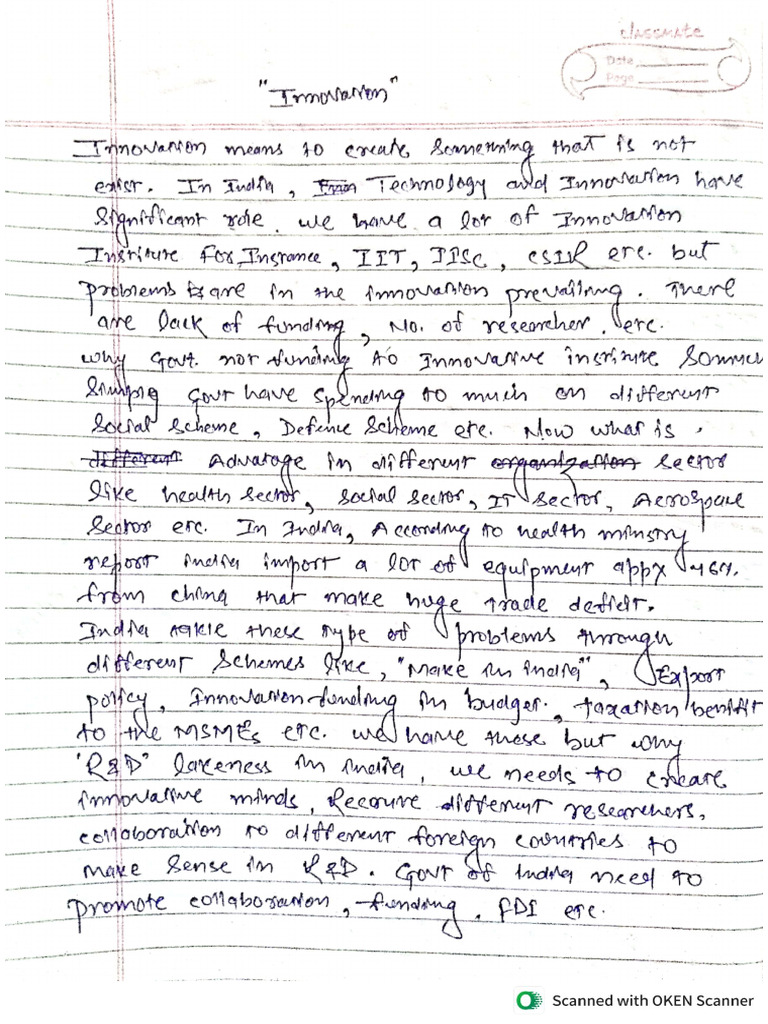 classmate
Date
Page
"Innovation"
Innovation means to create something that is not
exist. In India, Technology and Innovation have
significant role. we have a lot of Innovation
Institute for Instance, IIT, IISc, CSIR etc. but
problems is are in the innovation prevailing. There
are lack of funding, No. of researcher. etc.
why Govt. not funding to Innovative institute
Govt have spending to much on different
Social Scheme, Defence Scheme etc. Now what is
different Advatage in different organization sector
like health sector, social sector, IT sector, Aerospace
sector etc. In India, According to health minstry
report india import a lot of equipment appx 46%.
from china that make huge trade deficit.
India takle these type of problems through
different schemes like, "Make in india", Export
policy, Innovation funding in budget., taxation benifit
to the MSMEs etc. we have these but why
'R&D' lackness in india, we needs to create
innovative minds, Recruite different researchers.
collaboration to different foreign countries to
make sense in R&D. Govt of India need to
promote collaboration, funding, FDI etc.
Scanned with OKEN Scanner